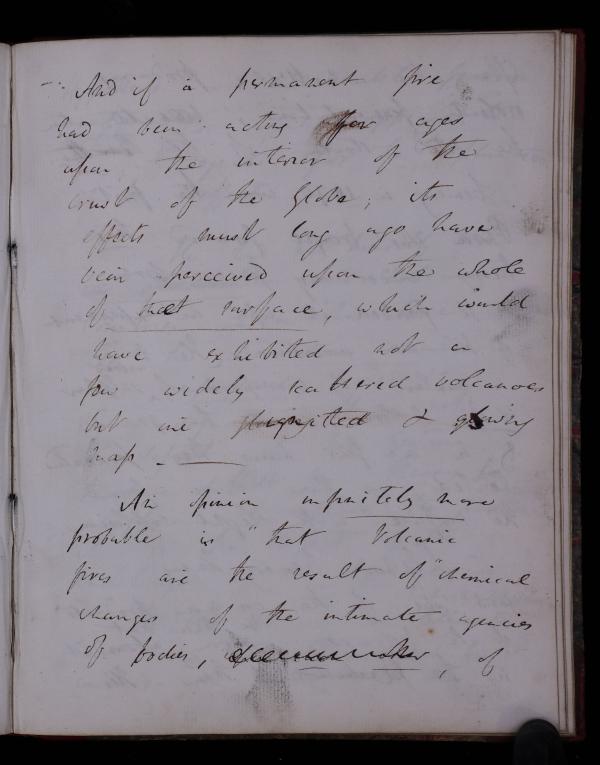 And if a permanent fire
had been acting for ages
upon the interior of the
crust of the Globe; its
effects must long ago have
been perceived upon the whole
of that surface, which would
have exhibited not a
few widely scattered volcanoes
but one ignited & glowing
mass. —
An opinion infinitely more
probable is "that Volcanic
fires are the result of "chemical
changes of the intimate agencies
of bodies, , of